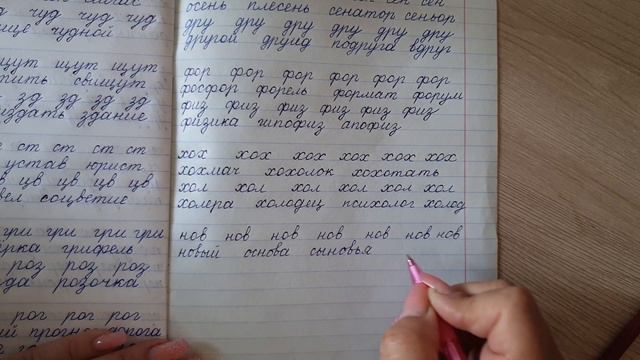 чуд чуд чуд
чудной
щут щут щут
свищут
зд зд зд зд
издать здание
ст ст ст ст
устав юрист
цв цв цв цв
соцветие
гри гри гри гри
грифель
роз роз роз
розочка
рог рог рог
осень плесень сенатор сеньор
дру дру дру дру дру дру
другой друид подруга вдруг
фор фор фор фор фор фор
фосфор форель формат форум
физ физ физ физ физ физ
физика гипофиз апофиз
хох хох хох хох хох хох
хохмач хохолок хохотать
хол хол хол хол хол хол
холера холодец психолог холод
нов нов нов нов нов нов нов
новый основа сыновья